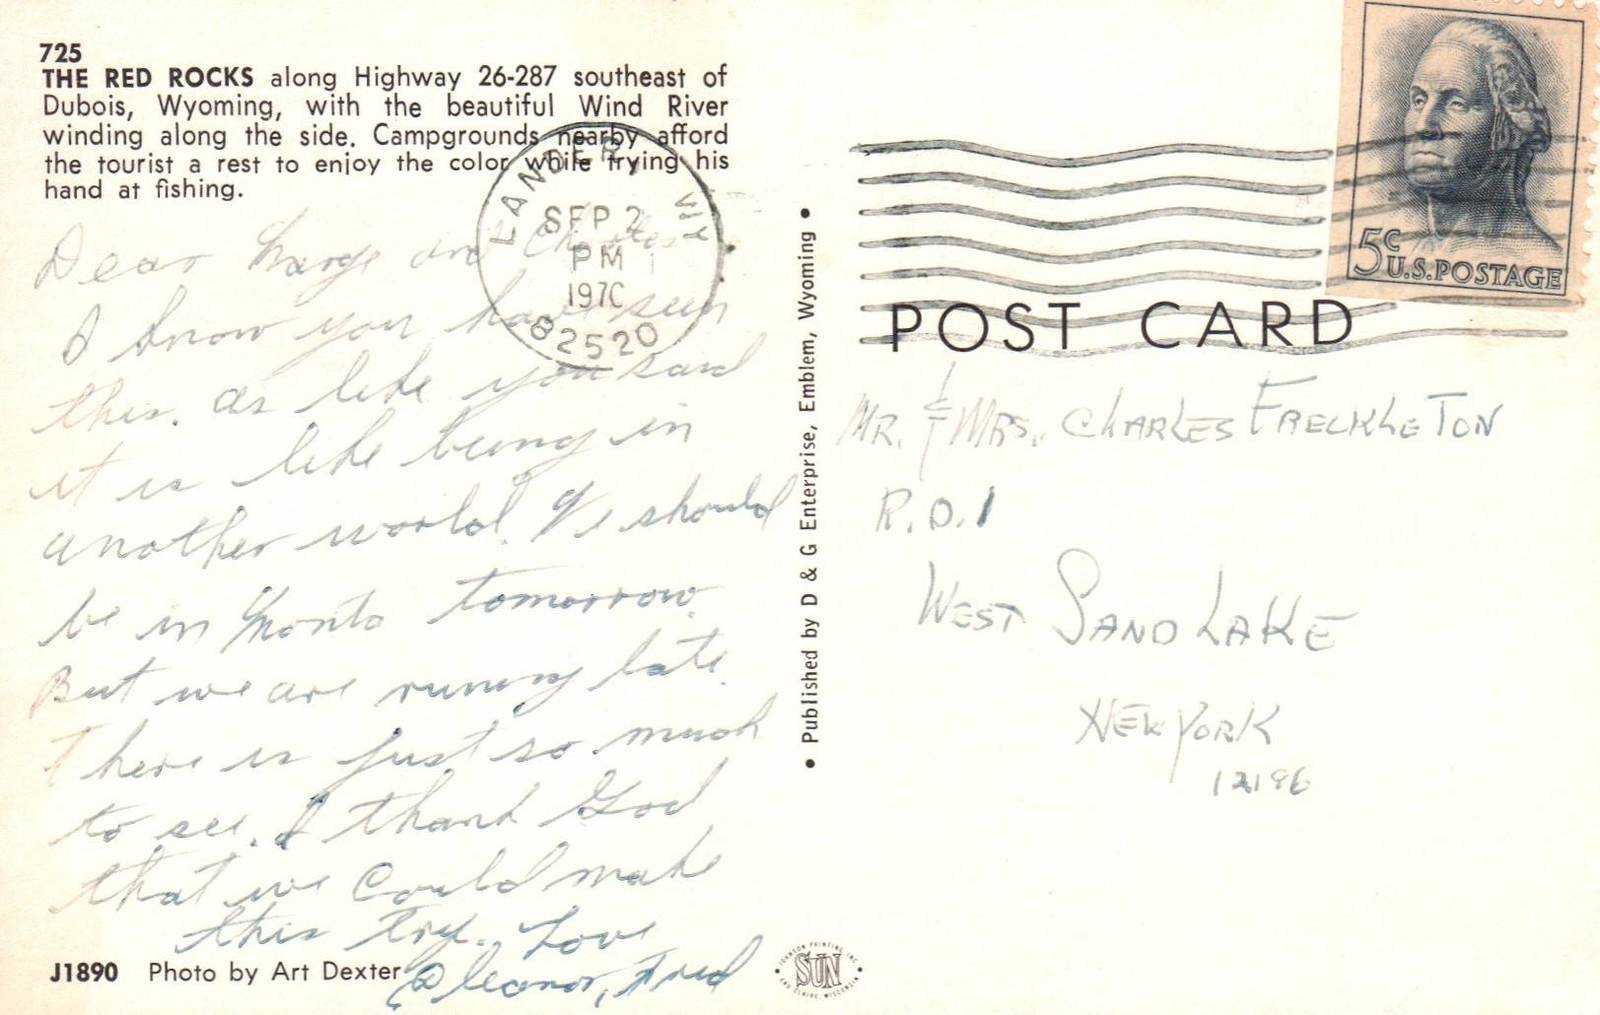 725
THE RED ROCKS along Highway 26-287 southeast of
Dubois, Wyoming, with the beautiful Wind River
winding along the side. Campgrounds nearby afford
the tourist a rest to enjoy the color while trying his
hand at fishing.
LANDER, WY
SEP 2
PM
1970
82520
Dear Marge and Charles
I know you have seen
this. as like you said
it is like being in
another world. We should
be in Monta tomorrow.
But we are runing late.
There is just so much
to see. I thank God
that we Could make
this Trip. Love
Eleanor, Fred
J1890 Photo by Art Dexter
• Published by D & G Enterprise, Emblem, Wyoming •
JOHNSON PRINTING INC.
SUN
EAU CLAIRE, WISCONSIN
5c
U.S. POSTAGE
POST CARD
MR. & MRS. CHARLES FRECKLETON
R.D.1
WEST SAND LAKE
NEW YORK
12196